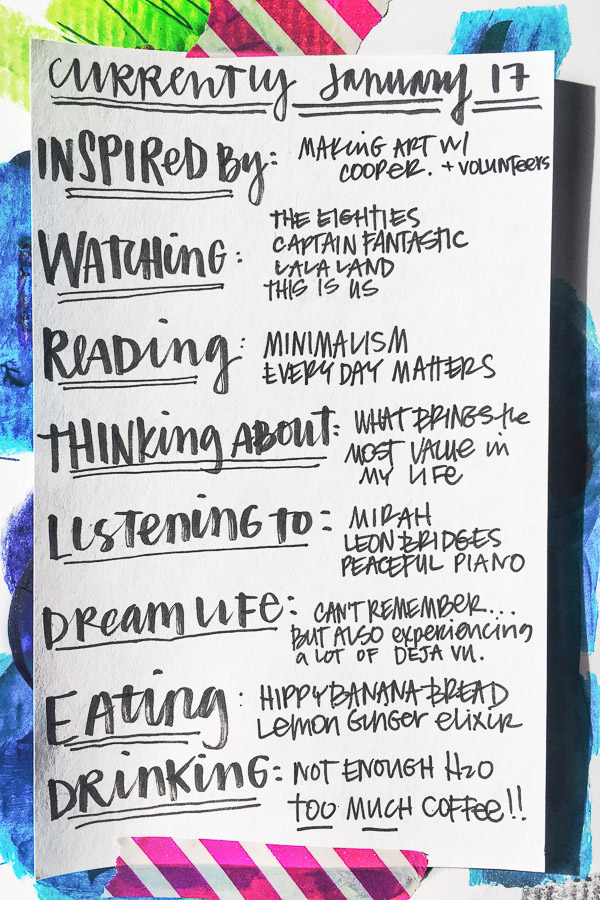 CURRENTLY January 17
INSPIRED By: MAKING ART W/
COOPER. + VOLUNTEERS
WATCHING: THE EIGHTIES
CAPTAIN FANTASTIC
LALA LAND
THIS IS US
READING: MINIMALISM
EVERYDAY MATTERS
THINKING ABOUT: WHAT BRINGS the
MOST VALUE in
MY LIFE
LISTENING TO: MIRAH
LEON BRIDGES
PEACEFUL PIANO
DREAM LIFE: CAN'T REMEMBER...
BUT ALSO experiencing
a LOT OF DEJA VU.
EATING: HIPPY BANANA BREAD
Lemon GINGER elixir
DRINKING: NOT ENOUGH H2O
TOO MUCH COFFEE!!